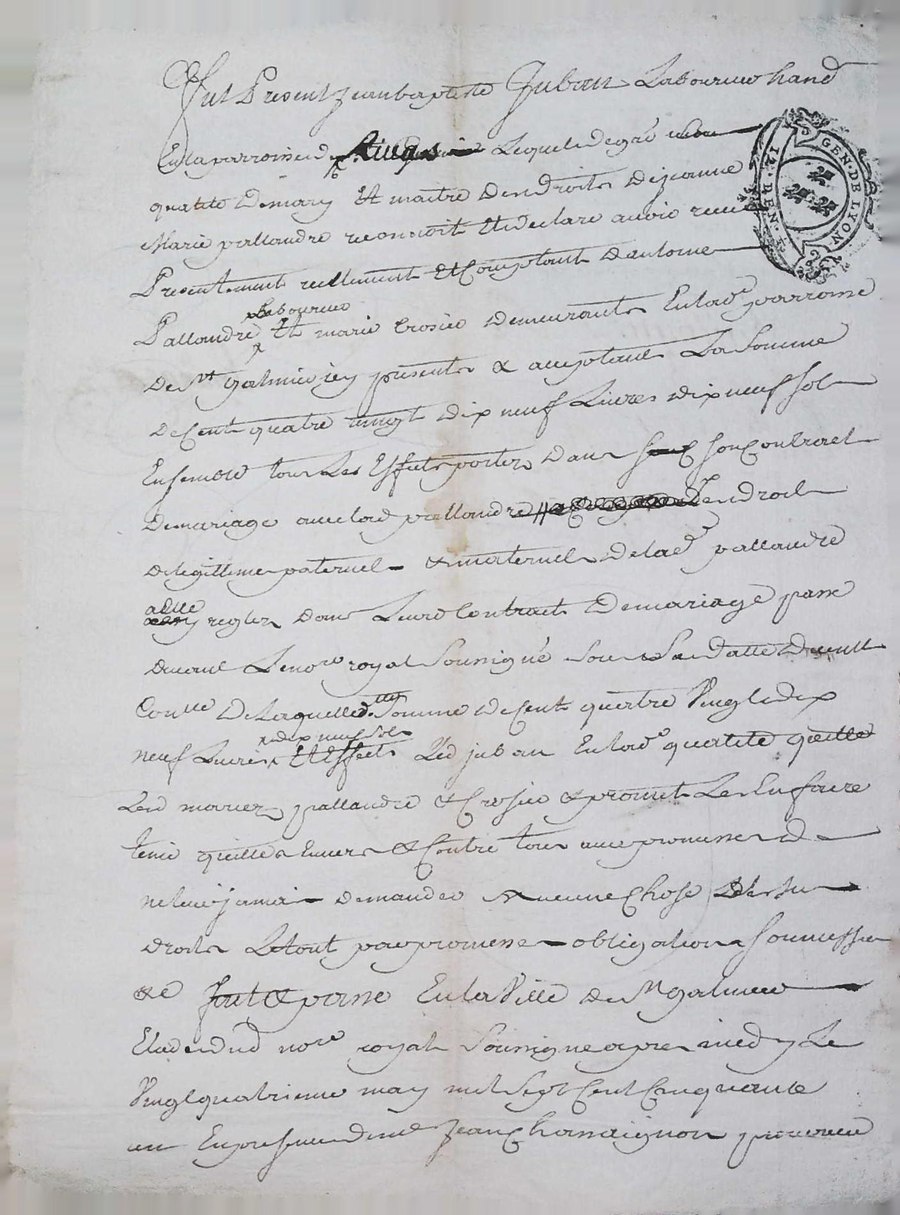 Fut Present Jean baptiste Juban Laboureur hand
En la parroisse de Rivas Lequel de gré en
qualité de mary Et maitre des droits de jeanne
Marie pallandre reconnoit Et declare avoir receu
Presentement reellement Et Comptant d'antoine
Laboureur
Pallandre Et marie Crosier demeurants En lad.e parroisse
De St galmier icy presents & acceptants La Somme
De Cent quatre vingt dix neuf Livres dix neuf sols
Ensemble tous Les Effets portés dans son Contract
de mariage avec lad pallandre Des droits
de legitime paternel & maternel de lad.e pallandre
a elle
regles dans Leurd Contract De mariage passé
devant Le no.re royal Soussigné Sous Sa datte
De Laquelle Somme de Cent quatre Vingt dix
dix neuf sols
neuf Livres Et Effets Led juban En lad.e qualité quitte
Lesd mariez pallandre & Crosier & promet Les En faire
tenir quittes Envers & Contre tous avec promesse de
ne leur jamais demander Aucune Chose
droits Le tout par promesse obligation Soumission
&c fait & passé En la Ville de St galmier
Etude dud no.re royal Soussigné apres midy Le
Vingt quatrieme may mil Sept Cent Cinquante
un En presence de Jean Chanaignon
GEN. DE LYON